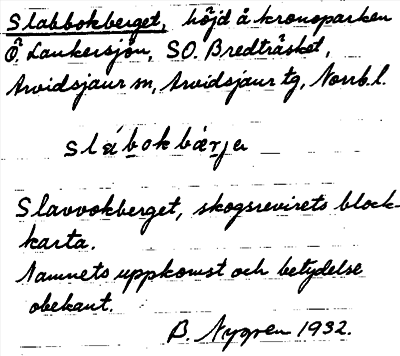 Slabbokberget, höjd å kronoparken
Ö. Lankersjön, SO. Bredträsket,
Arvidsjaur sn, Arvidsjaur tg, Norrb. l.
slábokbárje
Slavvokberget, skogsrevirets block-
karta.
Namnets uppkomst och betydelse
obekant.
B. Nygren 1932.